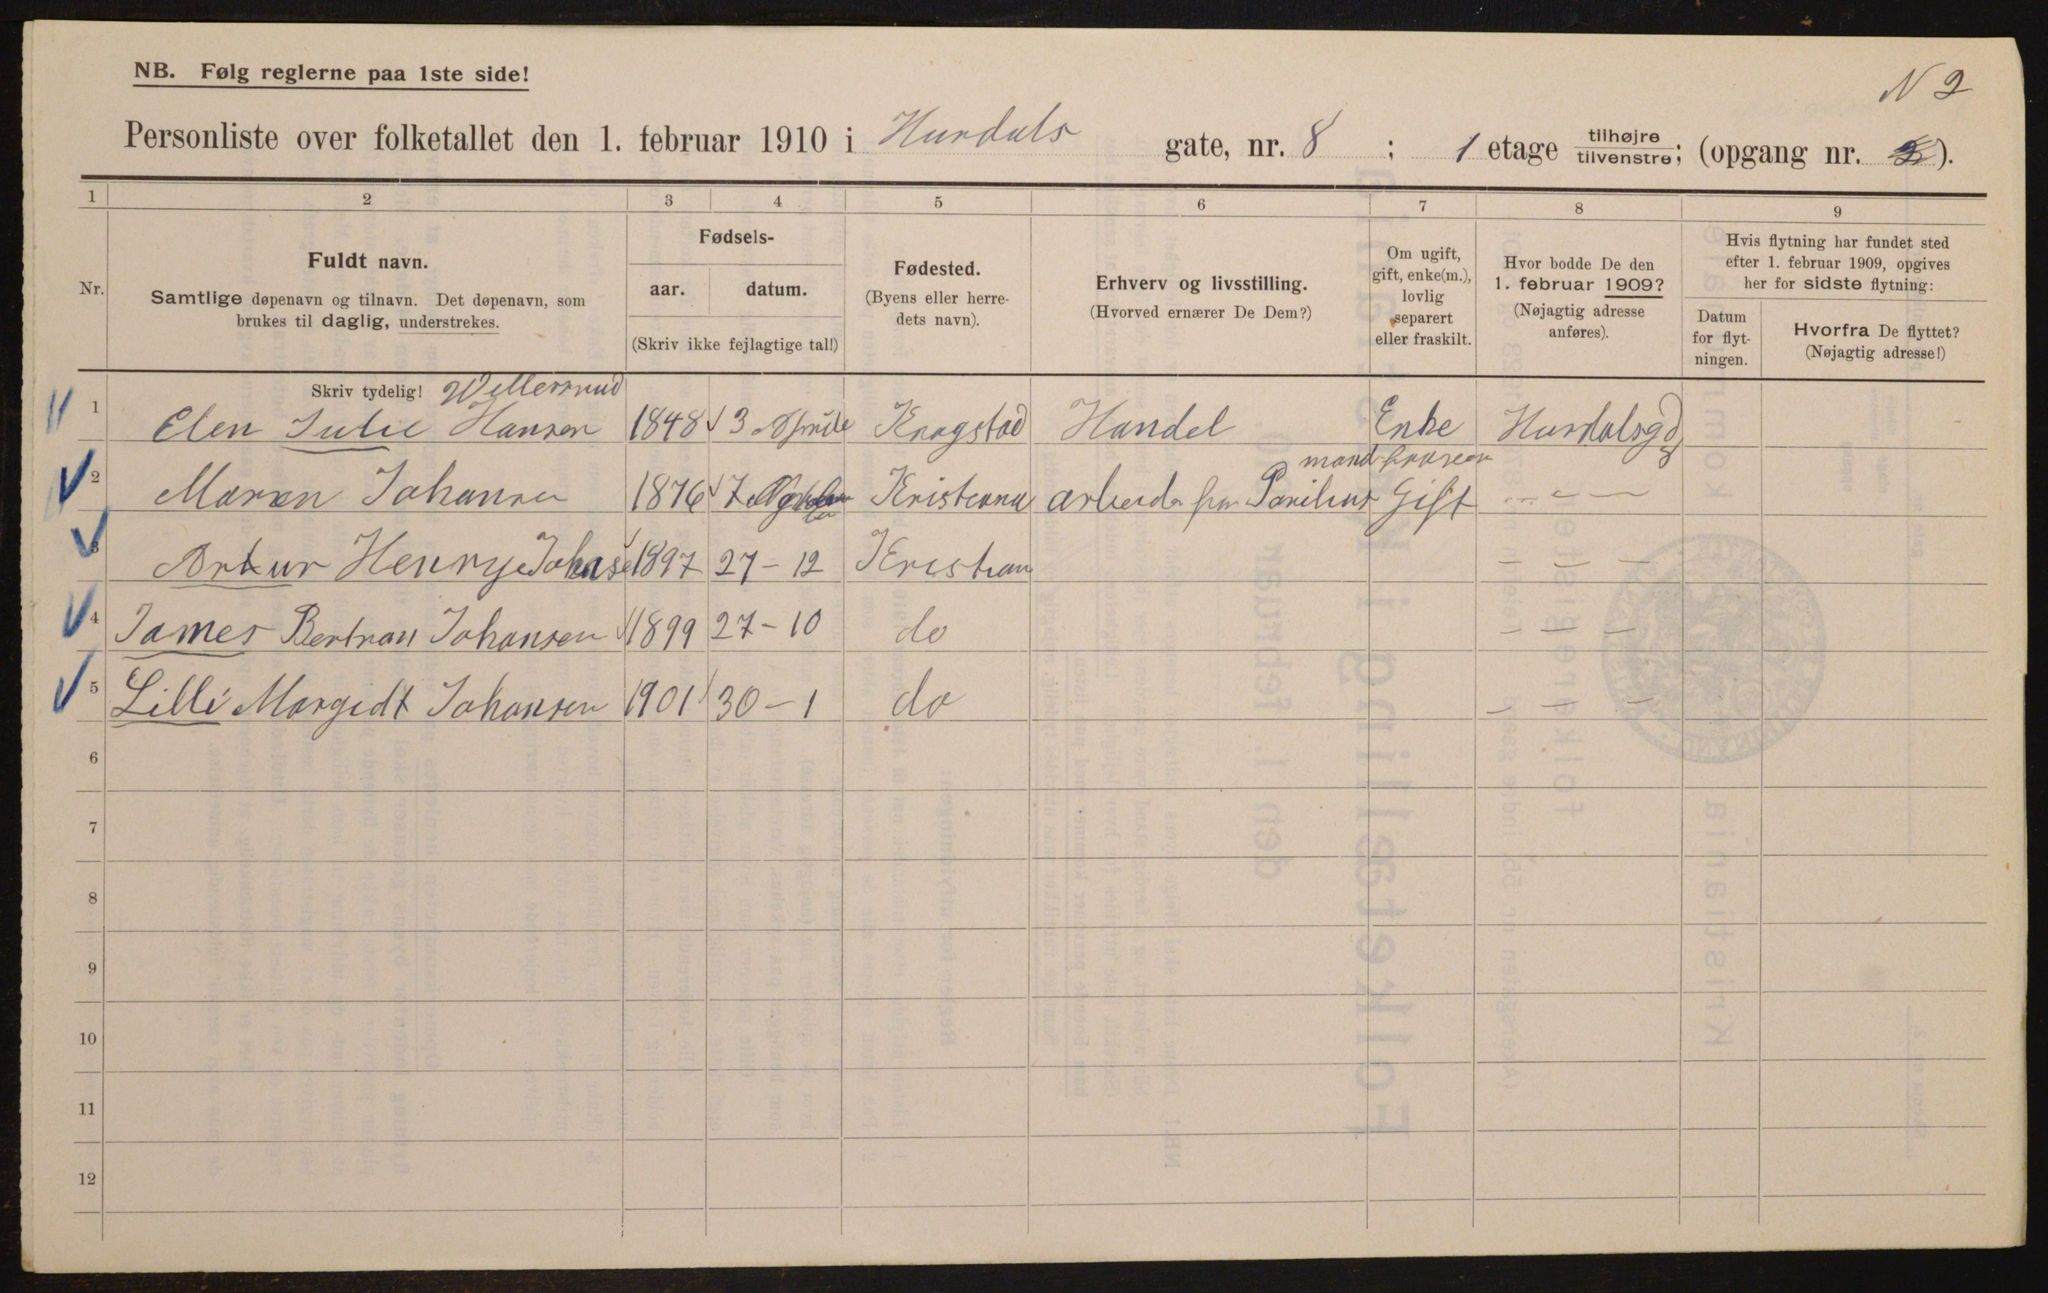 N 2
NB. Følg reglerne paa 1ste side!
Personliste over folketallet den 1. februar 1910 i Hurdals gate, nr. 8 ; 1 etage tilhøjre/tilvenstre; (opgang nr. ).
1 2 3 4 5 6 7 8 9
Nr.
Fuldt navn.
Samtlige døpenavn og tilnavn. Det døpenavn, som
brukes til daglig, understrekes.
Fødsels-
aar. datum.
(Skriv ikke fejlagtige tal!)
Fødested.
(Byens eller herre-
dets navn).
Erhverv og livsstilling.
(Hvorved ernærer De Dem?)
Om ugift,
gift, enke(m.),
lovlig
separert
eller fraskilt.
Hvor bodde De den
1. februar 1909?
(Nøjagtig adresse
anføres).
Hvis flytning har fundet sted
efter 1. februar 1909, opgives
her for sidste flytning:
Datum
for flyt-
ningen.
Hvorfra De flyttet?
(Nøjagtig adresse!)
Skriv tydelig! Willersrud
1 Elen Julie Hansen 1848 3 Krogstad Handel Enke Hurdalsgd 8
mand
2 Maren Johansen 1876 7 Kristiania Gift - - -
3 Artur Henry Johanse 1897 27-12 Kristian - - -
4 James Bertran Johansen 1899 27-10 do - - -
5 Lilli Margidt Johansen 1901 30-1 do - - -
6
7
8
9
10
11
12